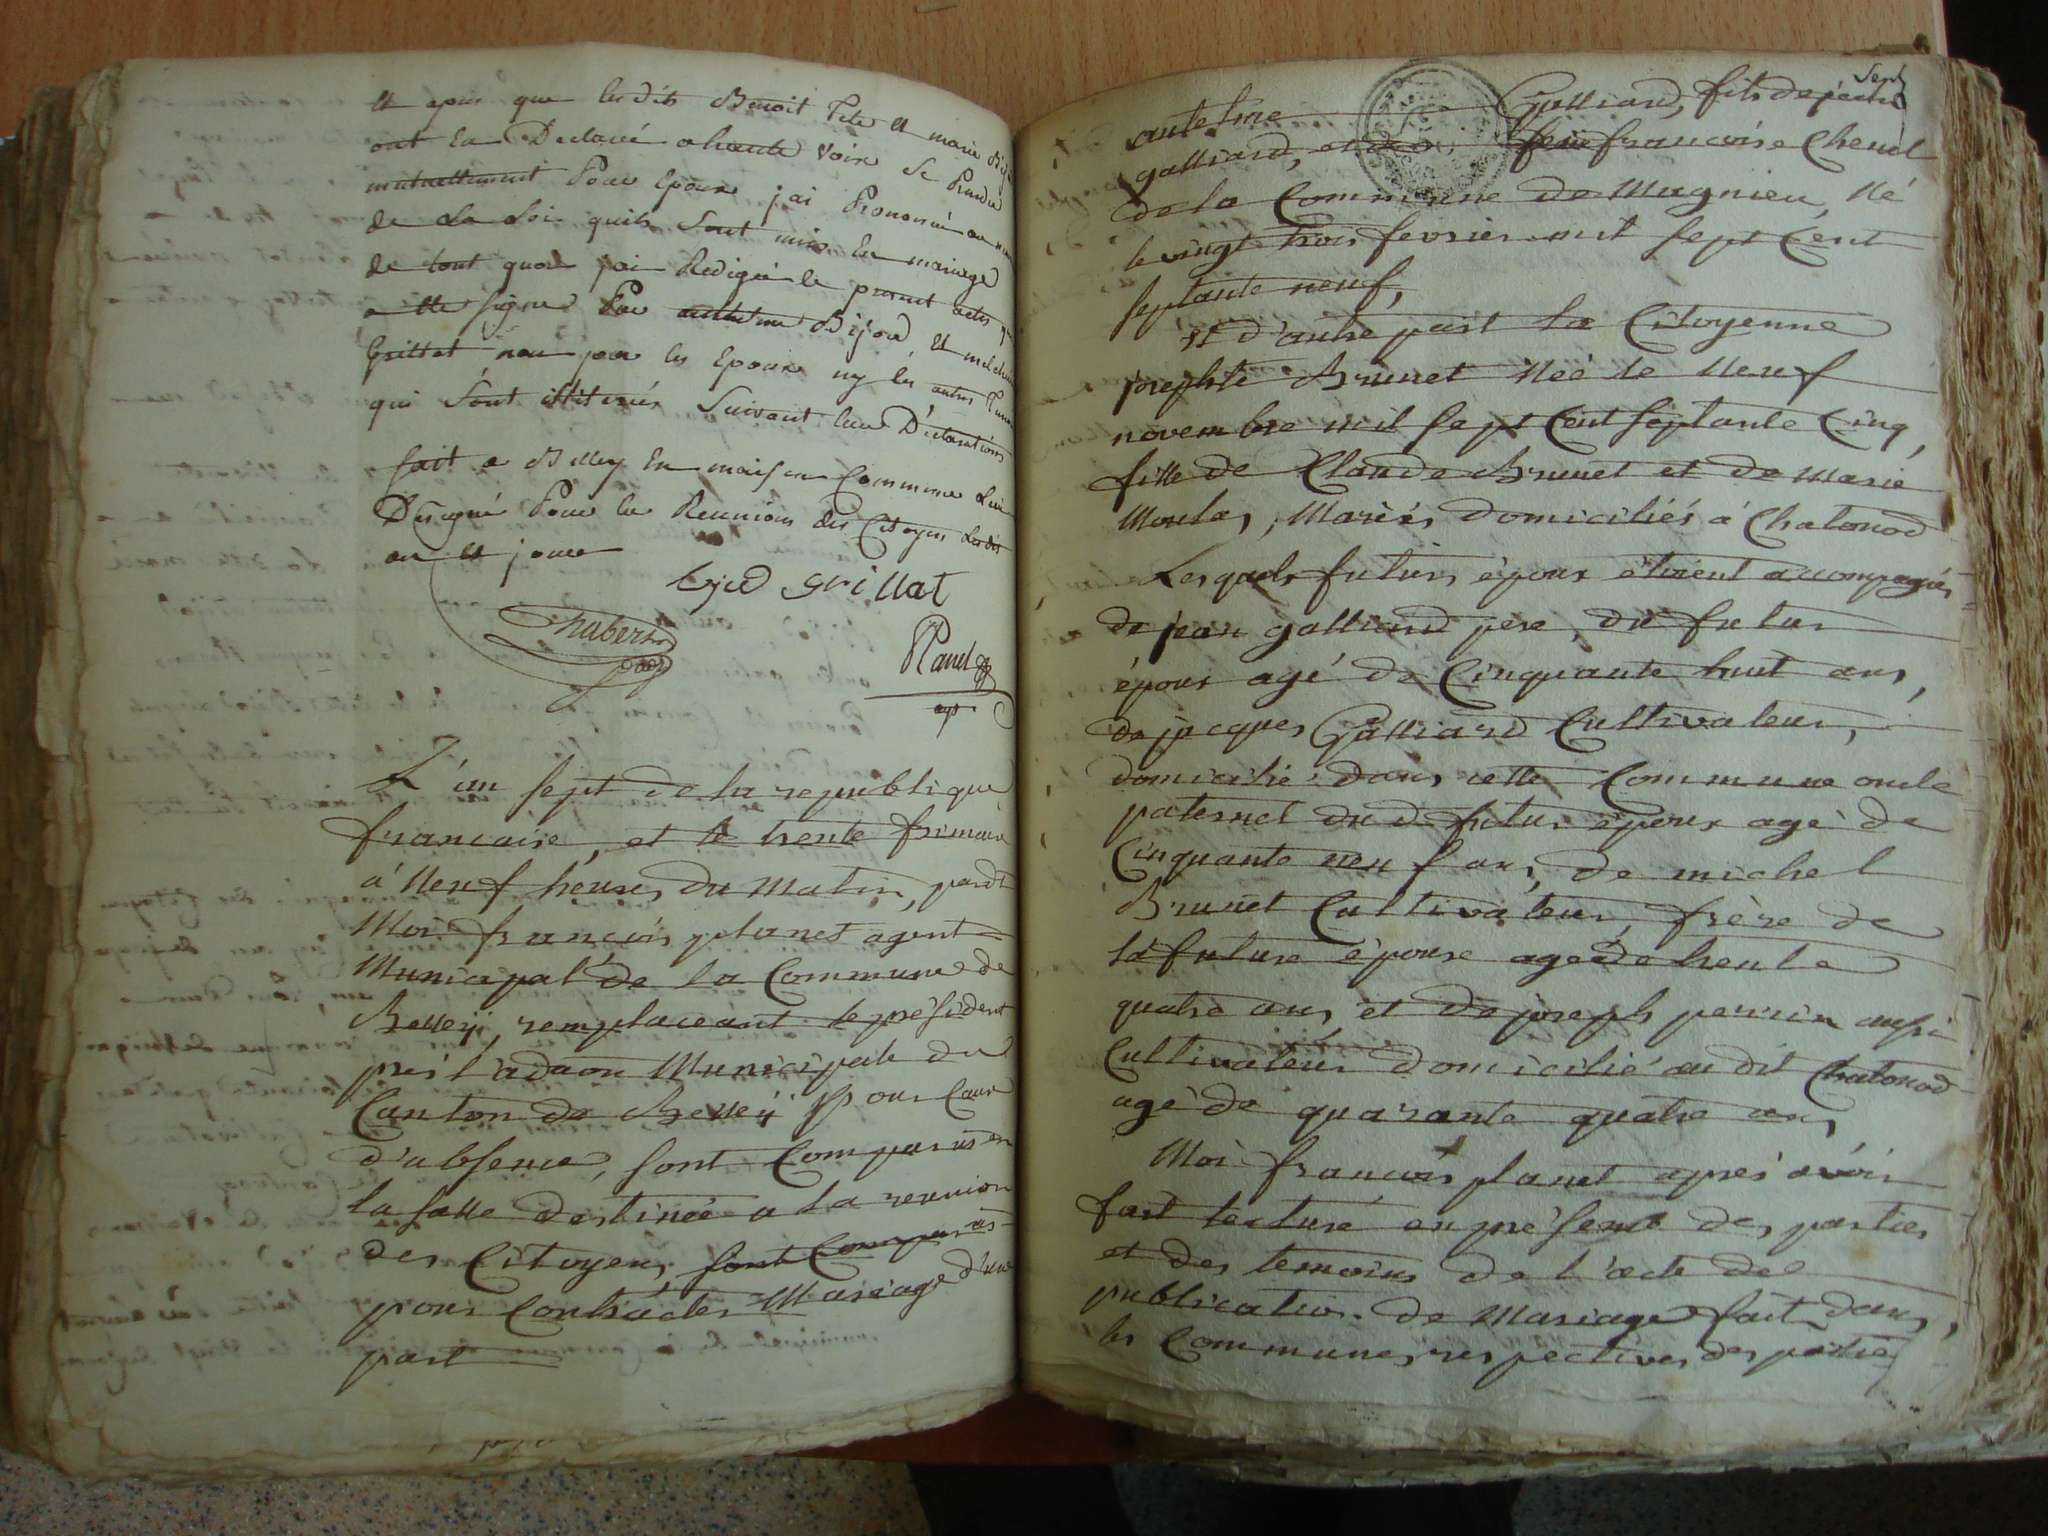 et apres que lesdits Benoit Tete et marie
ont eu Declaré a haute voix Se Prendre
mutuellement Pour Epoux jai Prononcé au nom
de La Loi quils Sont unis En mariage
de tout quoi jai Redigé le present acte
a ete signe Par anthelme Bijod et
Grillat non par les Epoux ny les autres
qui Sont illiterés Suivant leur Declarations
fait a Belley En maison Commune Lieu
Designé Pour la Reunion des Citoyens Lesdits
an et jour
bijod grillat
Planet
agt
L'an sept de la republique
francaise, et le trente frimaire
à Neuf heures du Matin, pardt
Moi françois planet agent
Municipal de la Commune de
Belleÿ, remplaceant le président
près l'adaon Municipale du
Canton de Belleÿ pour Cause
d'absence, sont Comparus en
la salle destineé a la reunion
des Citoyens, sont Comparus
pour Contracter Mariage d'une
part
antelme Galliard, fils de jean
galliard, et de feue francoise Chenel
de la Commune de Magnieu, Né
le vingt trois fevrier mil sept Cent
septante neuf,
et d'autre part la Citoyenne
josephte Brunet Née le Neuf
novembre mil sept Cent septante Cinq,
fille de Claude Brunet et de Marie
Moulas, Mariés domiciliés à Chatonod
Lesquels futurs époux étoient accompagnés
de jean galliard pere, du futur
époux agé de Cinquante huit ans,
de jacques Galliard Cultivateur,
domicilié dans cette Commune oncle
paternel du d. futur époux agé de
Cinquante neuf ans, de michel
Brunet Cultivateur, frère de
la future épouse agé de trente
quatre ans, et de joseph perrin aussi
Cultivateur domicilié au dit Chatonod
agé de quarante quatre ans,
Moi francois planet après avoir
fait lecture en présence des parties
et des temoins de l'acte de
publication de Mariage fait dans,
les Communes respectives des parties